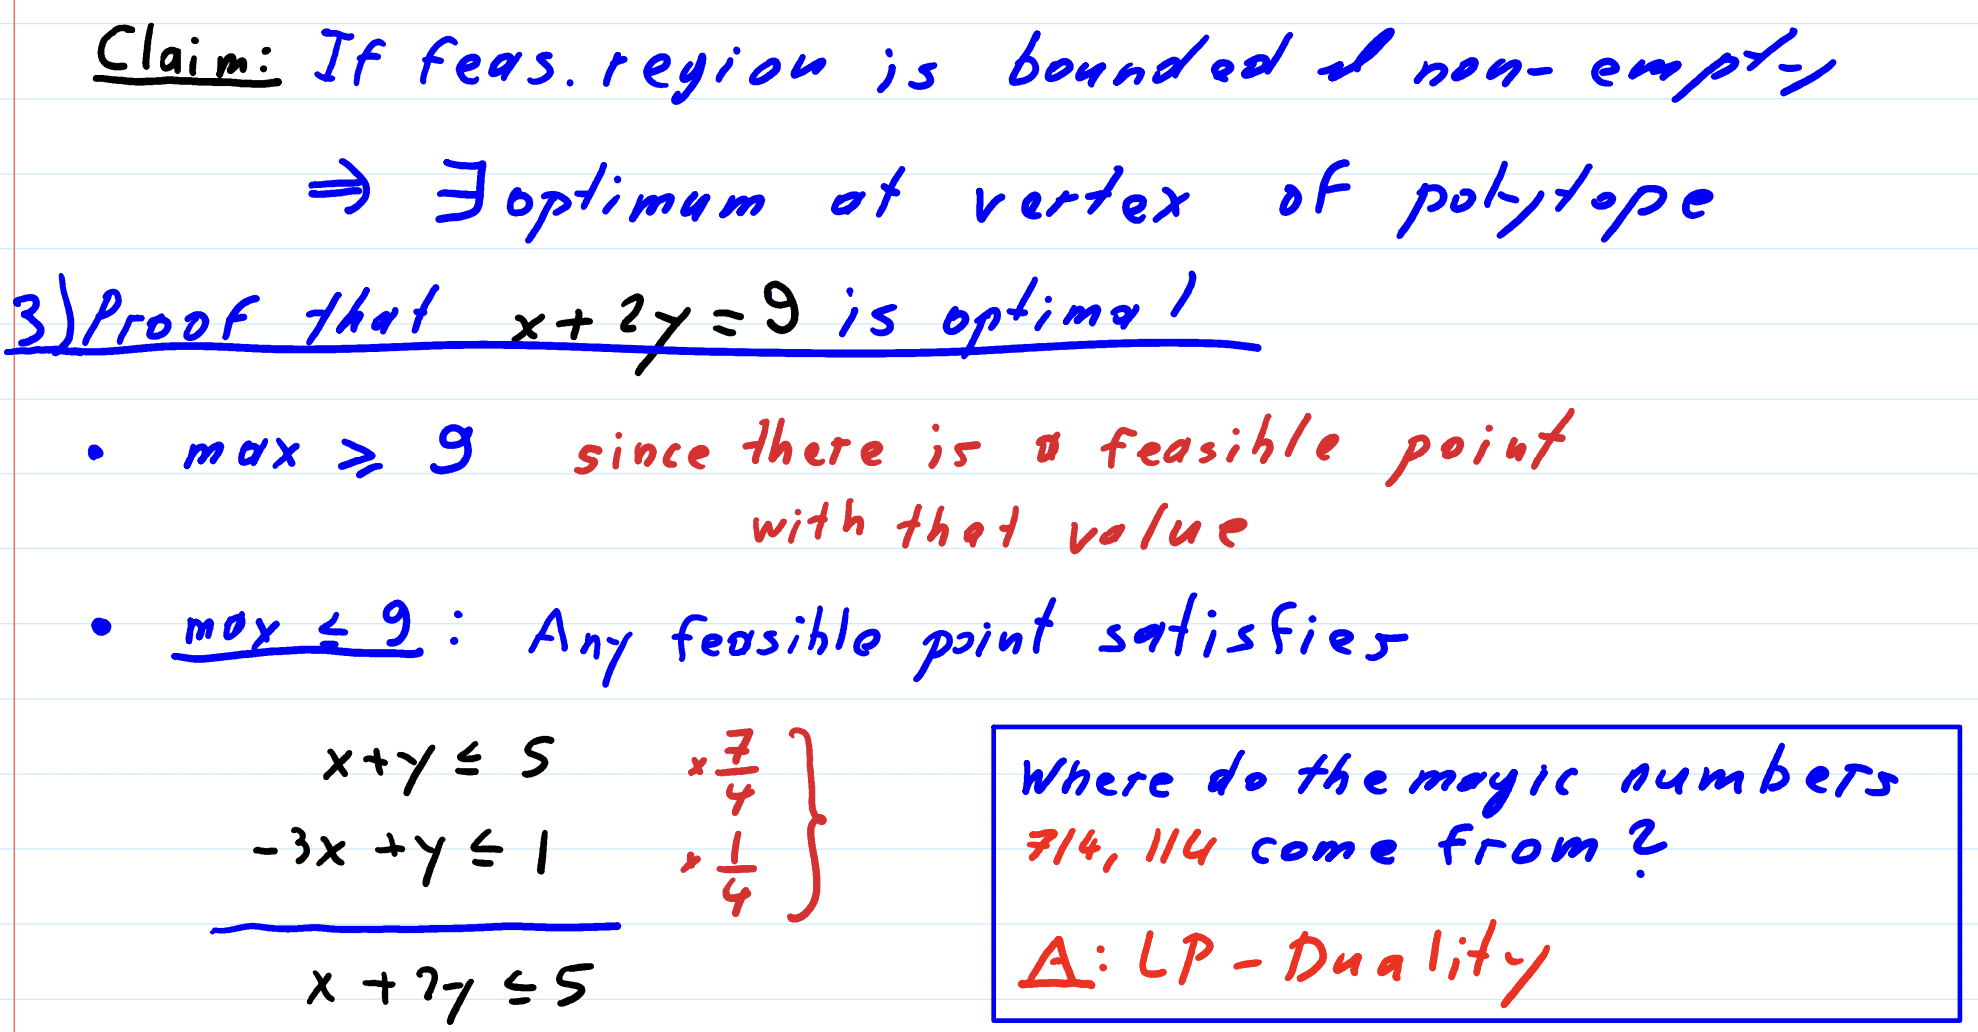 Claim: If feas. region is bounded & non-empty
⇒ ∃ optimum at vertex of polytope
3) Proof that x + 2y = 9 is optimal
• max ≥ 9 since there is a feasible point
with that value
• max ≤ 9 : Any feasible point satisfies
x+y ≤ 5 × 7/4
-3x + y ≤ 1 × 1/4
x + 2y ≤ 5
Where do the magic numbers
7/4, 1/4 come from?
A: LP - Duality